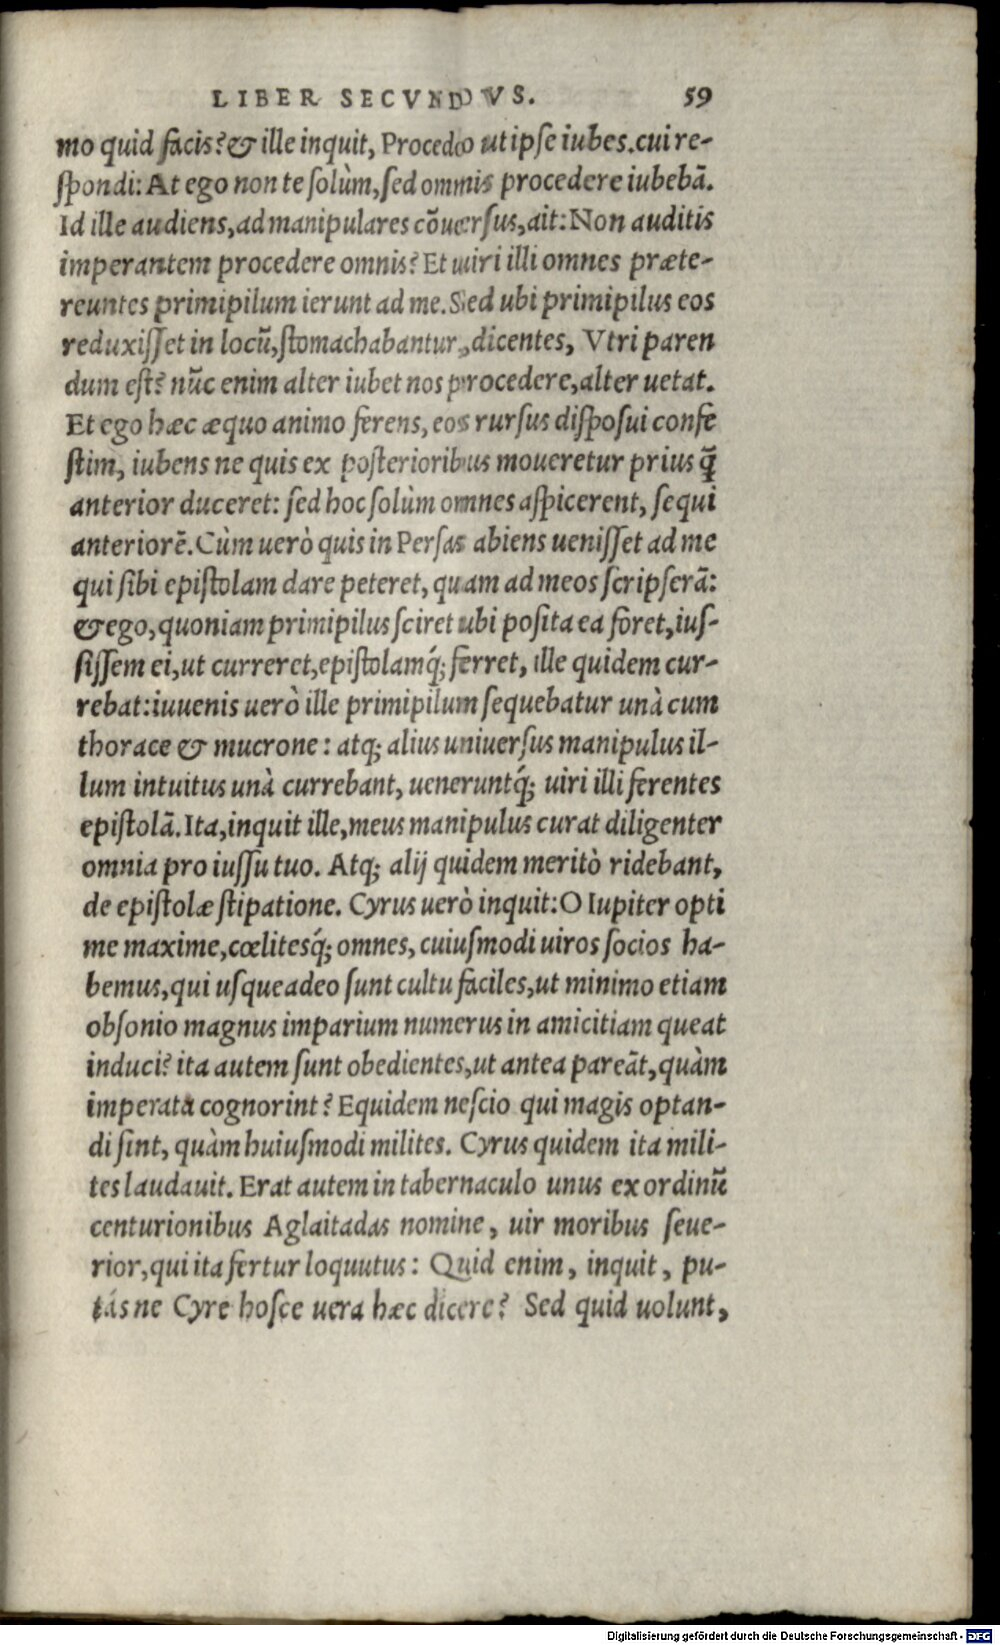 LIBER SECVNDVS. 59
mo quid facis? & ille inquit, Procedo ut ipſe iubes. cui re-
ſpondi: At ego non te ſolùm, ſed omnis procedere iubebã.
Id ille audiens, ad manipulares cõuerſus, ait: Non auditis
imperantem procedere omnis? Et uiri illi omnes præte-
reuntes primipilum ierunt ad me. Sed ubi primipilus eos
reduxiſſet in locũ, ſtomachabantur, dicentes, Vtri paren
dum eſt? nũc enim alter iubet nos procedere, alter uetat.
Et ego hæc æquo animo ferens, eos rurſus diſpoſui confe
ſtim, iubens ne quis ex poſterioribus moueretur prius q̃
anterior duceret: ſed hoc ſolùm omnes aſpicerent, ſequi
anteriorẽ. Cùm uerò quis in Perſas abiens ueniſſet ad me
qui ſibi epiſtolam dare peteret, quam ad meos ſcripſerã:
& ego, quoniam primipilus ſciret ubi poſita ea foret, iuſ-
ſiſſem ei, ut curreret, epiſtolamq́; ferret, ille quidem cur-
rebat: iuuenis uerò ille primipilum ſequebatur unà cum
thorace & mucrone: atq; alius uniuerſus manipulus il-
lum intuitus unà currebant, ueneruntq́; uiri illi ferentes
epiſtolã. Ita, inquit ille, meus manipulus curat diligenter
omnia pro iuſſu tuo. Atq; alij quidem meritò ridebant,
de epiſtolæ ſtipatione. Cyrus uerò inquit: O Iupiter opti
me maxime, cœlitesq́; omnes, cuiuſmodi uiros ſocios ha-
bemus, qui uſqueadeo ſunt cultu faciles, ut minimo etiam
obſonio magnus imparium numerus in amicitiam queat
induci? ita autem ſunt obedientes, ut antea pareãt, quàm
imperata cognorint? Equidem neſcio qui magis optan-
di ſint, quàm huiuſmodi milites. Cyrus quidem ita mili-
tes laudauit. Erat autem in tabernaculo unus ex ordinũ
centurionibus Aglaitadas nomine, uir moribus ſeue-
rior, qui ita fertur loquutus: Quid enim, inquit, pu-
tásne Cyre hoſce uera hæc dicere? Sed quid uolunt,
Digitalisierung gefördert durch die Deutsche Forschungsgemeinschaft - DFG